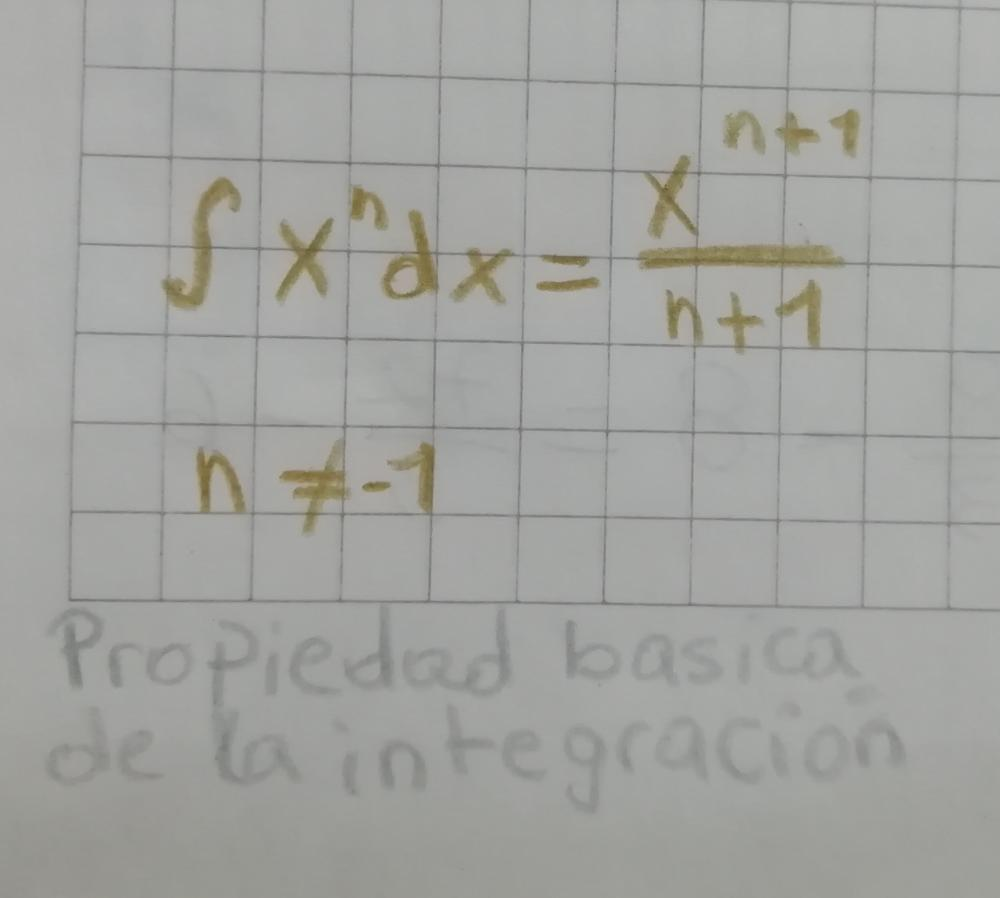 ∫ xⁿ dx = xⁿ⁺¹ / n+1
n ≠ -1
Propiedad basica
de la integración